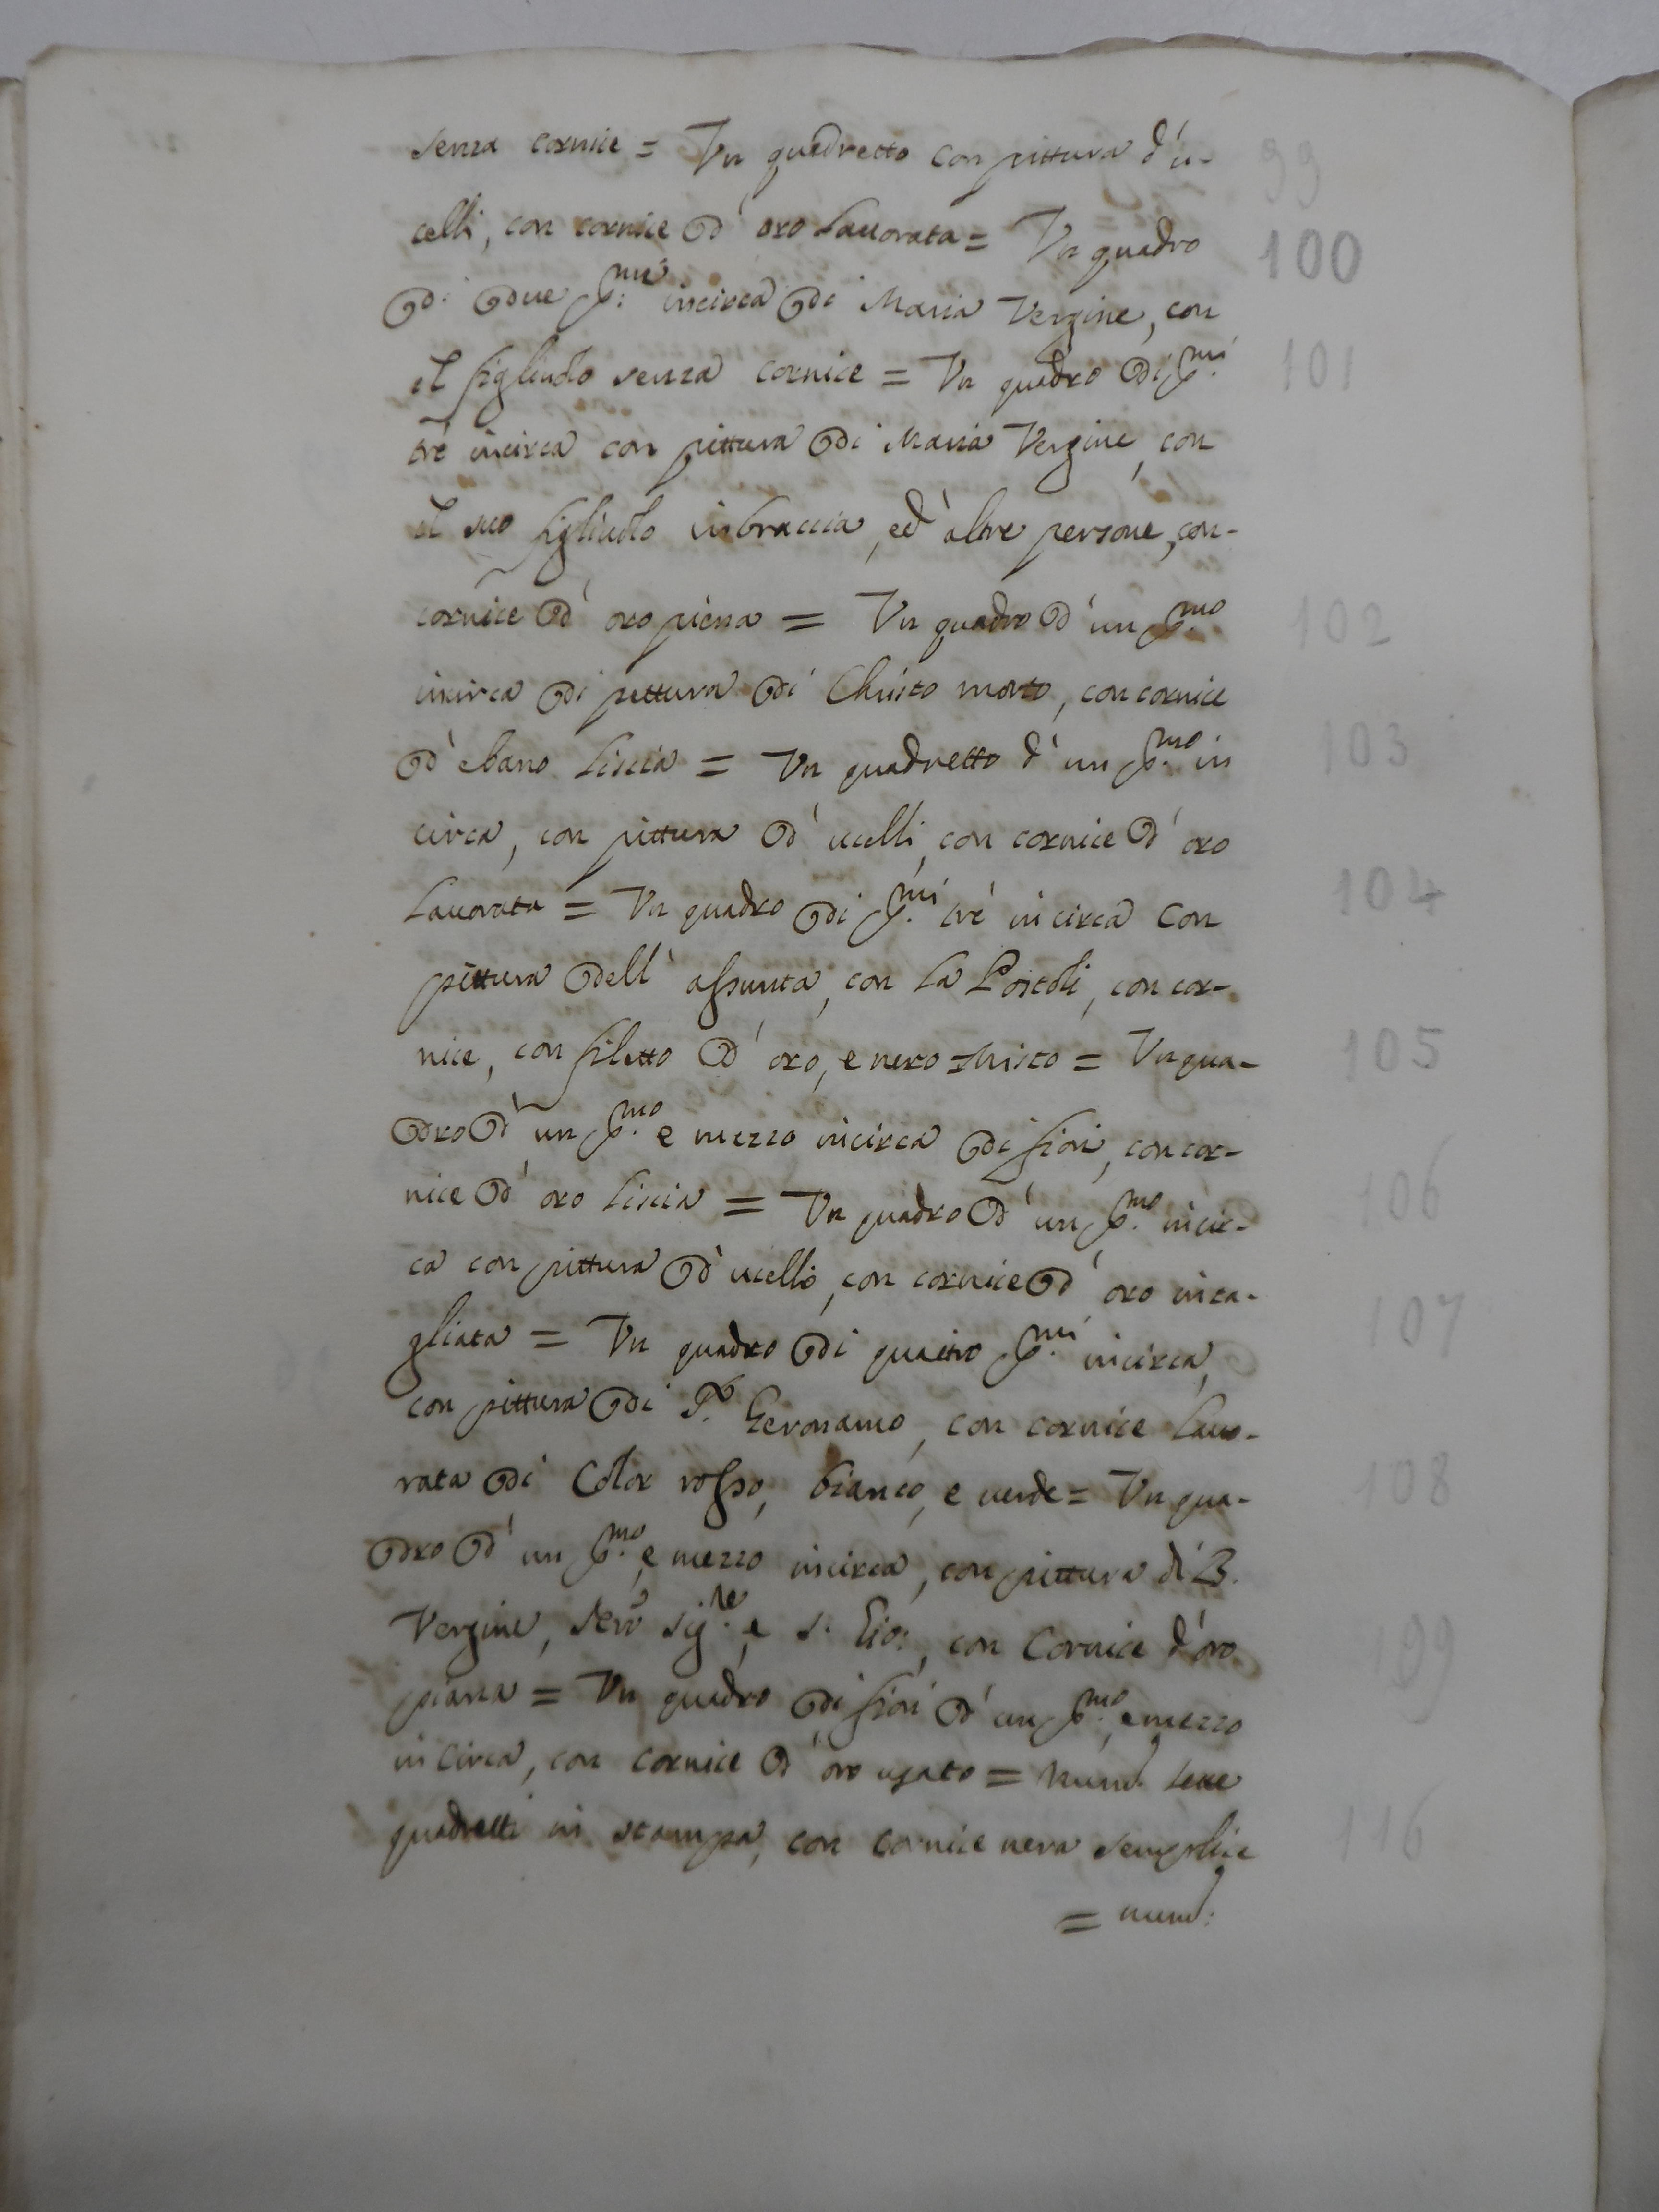 senza cornice = Un quadretto con pittura d'u- 99
celli, con cornice d'oro lauorata = Un quadro 100
di due p.mi incirca di Maria Vergine, con
il figliuolo senza cornice = Un quadro di p.mi 101
tre incirca con pittura di Maria Vergine, con
il suo figliuolo in braccia, ed altre persone, con-
cornice d'oro piena = Un quadro d'un p.mo 102
incirca di pettura di Christo morto, con cornice
d'ebano liscia = Un quadretto d'un p.mo in 103
circa, con pittura d'ucelli, con cornice d'oro
lauorata = Un quadro di p.mi trè in circa con 104
pittura dell'assunta, con la Postoli, con cor-
nice, con filetto d'oro, e nero misto = Un qua- 105
dro d'un p.mo e mezzo incirca di fiori, con cor-
nice d'oro liscia = Un quadro d'un p.mo incir- 106
ca con pittura d'ucelli, con cornice d'oro inta-
gliata = Un quadro di quattro p.mi incirca, 107
con pittura di S. Geronamo, con cornice lauo-
rata di Color rosso, bianco, e verde = Un qua- 108
dro d'un p.mo, e mezzo incirca, con pittura di B.
Vergine, sig.re, e S. Gio:, con Cornice d'oro 109
piana = Un quadro di fiori d'un p.mo, e mezzo
in circa, con cornice d'oro usato = Num. sette
quadretti in stampa, con cornice nera semplice 116
= num: